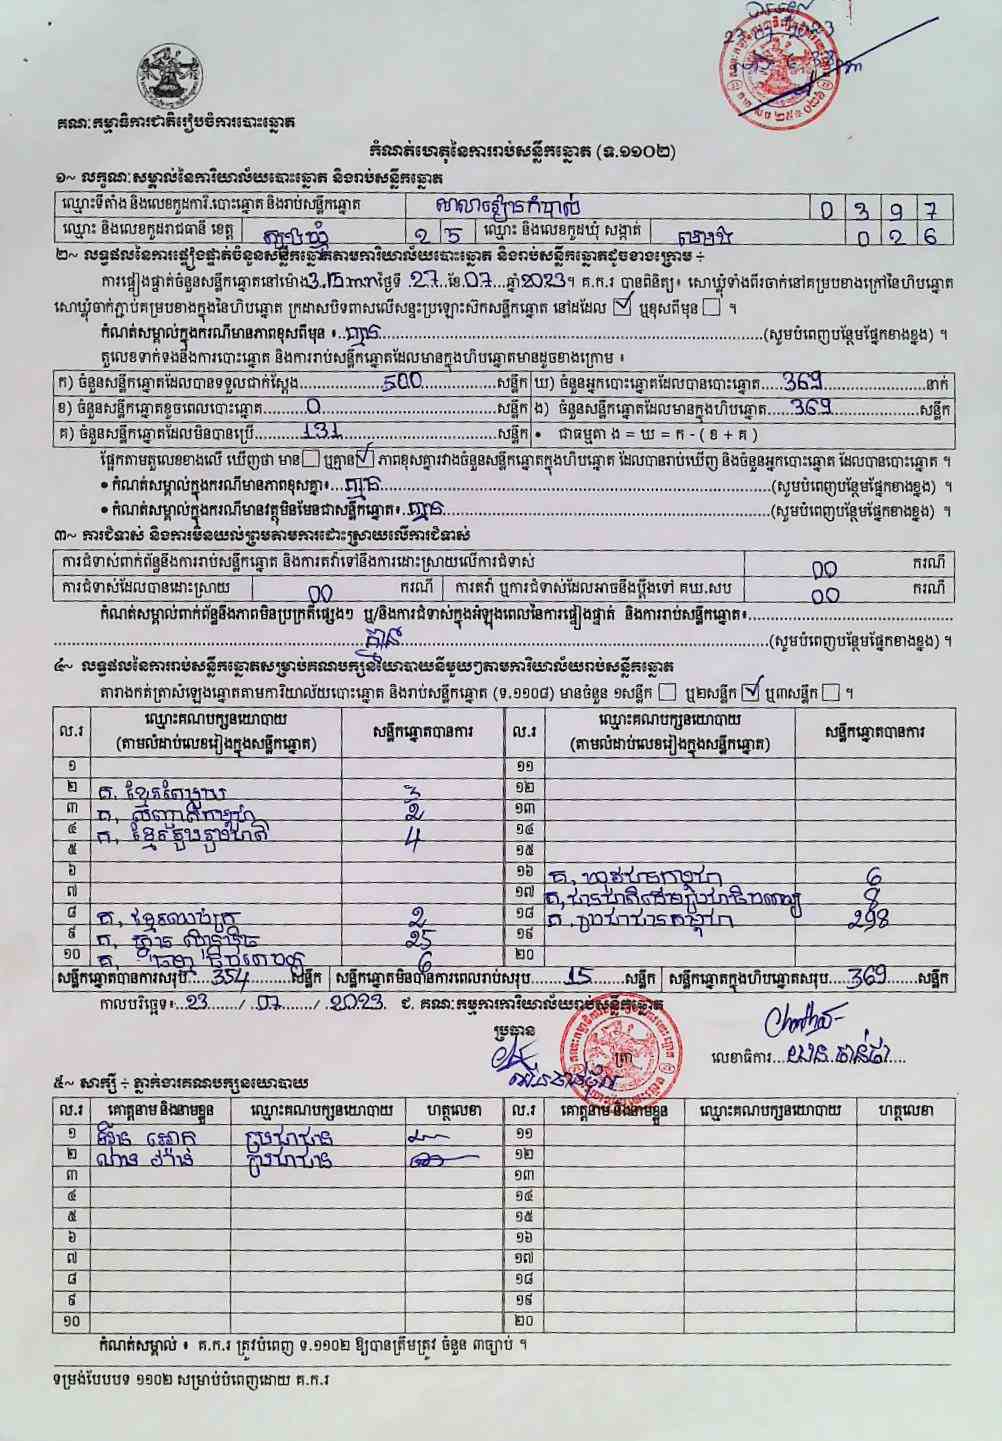 គណៈកម្មាធិការជាតិរៀបចំការបោះឆ្នោត
កំណត់ហេតុនៃការរាប់សន្លឹកឆ្នោត (ទ.១១០២)
១~ លក្ខណៈសម្គាល់នៃការិយាល័យបោះឆ្នោត និងរាប់សន្លឹកឆ្នោត
ឈ្មោះទីតាំង និងលេខកូដការិ.បោះឆ្នោត និងរាប់សន្លឹកឆ្នោត 0 3 9 7
ឈ្មោះ និងលេខកូដរាជធានី ខេត្ត ត្បូងឃ្មុំ 2 5 ឈ្មោះ និងលេខកូដឃុំ សង្កាត់ 0 2 6
២~ លទ្ធផលនៃការផ្ទៀងផ្ទាត់ចំនួនសន្លឹកឆ្នោតតាមការិយាល័យបោះឆ្នោត និងរាប់សន្លឹកឆ្នោតដូចខាងក្រោម ÷
ការផ្ទៀងផ្ទាត់ចំនួនសន្លឹកឆ្នោតនៅម៉ោង 3:15 ថ្ងៃទី 27 ខែ 07 ឆ្នាំ 2023។ គ.ក.រ បានពិនិត្យ៖ សោឃ្លុំទាំងពីរចាក់នៅគម្របខាងក្រៅនៃហិបឆ្នោត
សោឃ្លុំចាក់ភ្ជាប់គម្របខាងក្នុងនៃហិបឆ្នោត ក្រដាសបិទពាសលើសន្ទះប្រឡោះស៊កសន្លឹកឆ្នោត នៅដដែល ☑ ឬខុសពីមុន ☐ ។
កំណត់សម្គាល់ក្នុងករណីមានភាពខុសពីមុន ៖ គ្មាន (សូមបំពេញបន្ថែមផ្នែកខាងខ្នង) ។
តួលេខទាក់ទងនឹងការបោះឆ្នោត និងការរាប់សន្លឹកឆ្នោតដែលមានក្នុងហិបឆ្នោតមានដូចខាងក្រោម ៖
ក) ចំនួនសន្លឹកឆ្នោតដែលបានទទួលជាក់ស្ដែង 500 សន្លឹក ឃ) ចំនួនអ្នកបោះឆ្នោតដែលបានបោះឆ្នោត 369 នាក់
ខ) ចំនួនសន្លឹកឆ្នោតខូចពេលបោះឆ្នោត 0 សន្លឹក ង) ចំនួនសន្លឹកឆ្នោតដែលមានក្នុងហិបឆ្នោត 369 សន្លឹក
គ) ចំនួនសន្លឹកឆ្នោតដែលមិនបានប្រើ 131 សន្លឹក • ជាធម្មតា ង = ឃ = ក - ( ខ + គ )
ផ្អែកតាមតួលេខខាងលើ ឃើញថា មាន ☐ ឬគ្មាន ☑ ភាពខុសគ្នារវាងចំនួនសន្លឹកឆ្នោតក្នុងហិបឆ្នោត ដែលបានរាប់ឃើញ និងចំនួនអ្នកបោះឆ្នោត ដែលបានបោះឆ្នោត ។
• កំណត់សម្គាល់ក្នុងករណីមានភាពខុសគ្នា៖ គ្មាន (សូមបំពេញបន្ថែមផ្នែកខាងខ្នង) ។
• កំណត់សម្គាល់ក្នុងករណីមានវត្ថុមិនមែនជាសន្លឹកឆ្នោត៖ គ្មាន (សូមបំពេញបន្ថែមផ្នែកខាងខ្នង) ។
៣~ ការជំទាស់ និងការមិនយល់ព្រមតាមការដោះស្រាយលើការជំទាស់
ការជំទាស់ពាក់ព័ន្ធនឹងការរាប់សន្លឹកឆ្នោត និងការតវ៉ាទៅនឹងការដោះស្រាយលើការជំទាស់ 00 ករណី
ការជំទាស់ដែលបានដោះស្រាយ 00 ករណី ការតវ៉ា ឬការជំទាស់ដែលអាចនឹងប្ដឹងទៅ គឃ.សប 00 ករណី
កំណត់សម្គាល់ពាក់ព័ន្ធនឹងភាពមិនប្រក្រតីផ្សេងៗ ឬ/និងការជំទាស់ក្នុងអំឡុងពេលនៃការផ្ទៀងផ្ទាត់ និងការរាប់សន្លឹកឆ្នោត៖
គ្មាន (សូមបំពេញបន្ថែមផ្នែកខាងខ្នង) ។
៤~ លទ្ធផលនៃការរាប់សន្លឹកឆ្នោតសម្រាប់គណបក្សនយោបាយនីមួយៗតាមការិយាល័យរាប់សន្លឹកឆ្នោត
តារាងកត់ត្រាសំឡេងឆ្នោតតាមការិយាល័យបោះឆ្នោត និងរាប់សន្លឹកឆ្នោត (ទ.១១០៨) មានចំនួន ១សន្លឹក ☐ ឬ២សន្លឹក ☑ ឬ៣សន្លឹក ☐ ។
ល.រ ឈ្មោះគណបក្សនយោបាយ (តាមលំដាប់លេខរៀងក្នុងសន្លឹកឆ្នោត) សន្លឹកឆ្នោតបានការ ល.រ ឈ្មោះគណបក្សនយោបាយ (តាមលំដាប់លេខរៀងក្នុងសន្លឹកឆ្នោត) សន្លឹកឆ្នោតបានការ
១ ១១
២ គ. ខ្មែរ 3 ១២
៣ គ. 2 ១៣
៤ គ. ខ្មែរ 4 ១៤
៥ ១៥
៦ ១៦ គ. 6
៧ ១៧ 8
៨ គ. ខ្មែរឈប់ក្រ 2 ១៨ គ. ប្រជាជនកម្ពុជា 298
៩ គ. ហ៊្វុនស៊ិនប៉ិច 25 ១៩
១០ គ. 6 ២០
សន្លឹកឆ្នោតបានការសរុប 354 សន្លឹក សន្លឹកឆ្នោតមិនបានការពេលរាប់សរុប 15 សន្លឹក សន្លឹកឆ្នោតក្នុងហិបឆ្នោតសរុប 369 សន្លឹក
កាលបរិច្ឆេទ៖ 23 / 07 / 2023 ជ. គណៈកម្មការការិយាល័យរាប់សន្លឹកឆ្នោត
ប្រធាន
ត្រា លេខាធិការ
៥~ សាក្សី ÷ ភ្នាក់ងារគណបក្សនយោបាយ
ល.រ គោត្តនាម និងនាមខ្លួន ឈ្មោះគណបក្សនយោបាយ ហត្ថលេខា ល.រ គោត្តនាម និងនាមខ្លួន ឈ្មោះគណបក្សនយោបាយ ហត្ថលេខា
១ ប្រជាជន ១១
២ ប្រជាជន ១២
៣ ១៣
៤ ១៤
៥ ១៥
៦ ១៦
៧ ១៧
៨ ១៨
៩ ១៩
១០ ២០
កំណត់សម្គាល់ ៖ គ.ក.រ ត្រូវបំពេញ ទ.១១០២ ឱ្យបានត្រឹមត្រូវ ចំនួន ៣ច្បាប់ ។
ទម្រង់បែបបទ ១១០២ សម្រាប់បំពេញដោយ គ.ក.រ